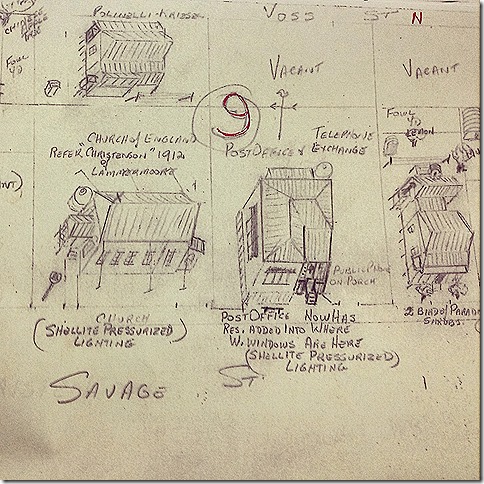 POLINELLI-KRIESEL
VOSS ST N
CHICKENS
FOWL
YD
VACANT
VACANT
9
FOWL
YD
LEMON
"CHURCH OF ENGLAND"
REFER "CHRISTENSON" 1912
of
LAMMERMOORE
TELEPHONE
POST OFFICE & EXCHANGE
PUBLIC PHONE
ON PORCH
CHURCH
(SHELLITE PRESSURIZED)
LIGHTING
POST OFFICE NOW HAS
RES. ADDED INTO WHERE
W. WINDOWS ARE HERE
(SHELLITE PRESSURIZED)
LIGHTING
2 BIRD OF PARAD
SHRUBS.
SAVAGE ST.